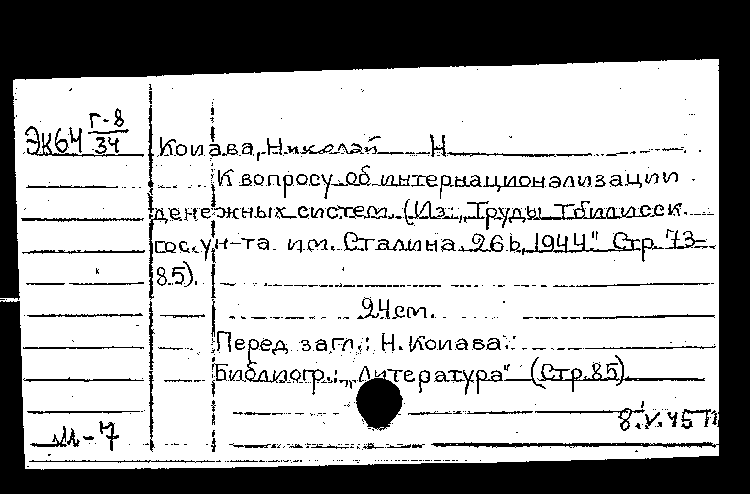 Эк64 Г-8/34
Коиава, Николай Н
К вопросу об интернационализации
денежных систем. (Из: „Труды Тбилисск.
гос. ун-та им. Сталина. 26b, 1944" Стр. 73-
85).
24см.
Перед загл.: Н. Коиава.
Библиогр.: „Литература" (Стр. 85)
8.V.45
М-7